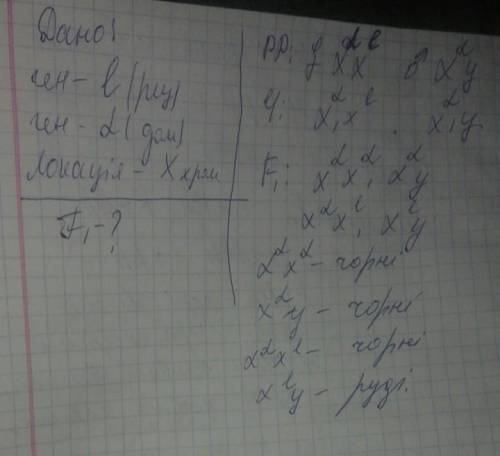 Дано:
ген - l (рец)
ген - L (дом)
Локація - X хром
F₁ - ?
PP: ♀ XᴸXˡ ♂ XᴸY
G: Xᴸ, Xˡ . Xᴸ, Y
F₁: XᴸXᴸ, XᴸY
XᴸXˡ, XˡY
XᴸXᴸ - чорні
XᴸY - чорні
XᴸXˡ - чорні
XˡY - руді.